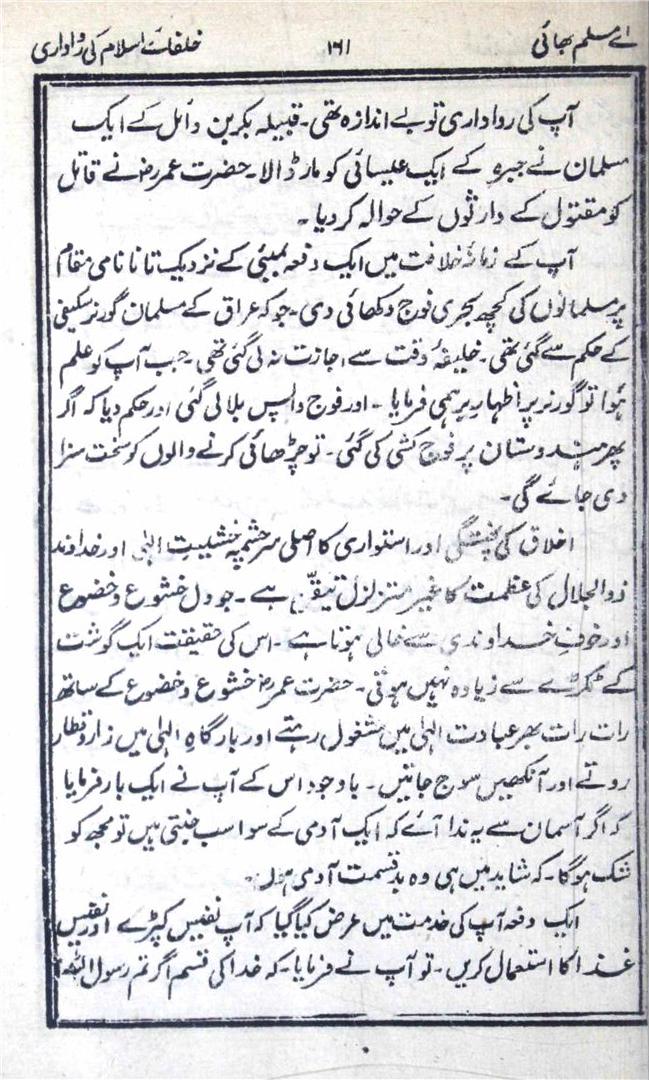 اے مسلم بھائی ۱۶۱ خلفائے اسلام کی رواداری
آپ کی رواداری تو بے اندازہ تھی۔ قبیلہ بکر بن وائل کے ایک
مسلمان نے جبرہ کے ایک عیسائی کو مار ڈالا۔ حضرت عمرؓ نے قاتل
کو مقتول کے وارثوں کے حوالہ کر دیا۔
آپ کے زمانۂ خلافت میں ایک دفعہ بمبئی کے نزدیک تانا نامی مقام
پر مسلمانوں کی کچھ بحری فوج دکھائی دی۔ جو کہ عراق کے مسلمان گورنر
کے حکم سے گئی تھی۔ خلیفۂ وقت سے اجازت نہ لی گئی تھی۔ جب آپ کو علم
ہوا تو گورنر پر اظہارِ برہمی فرمایا۔ اور فوج واپس بلالی گئی اور حکم دیا کہ اگر
پھر ہندوستان پر فوج کشی کی گئی۔ تو چڑھائی کرنے والوں کو سخت سزا
دی جائے گی۔
اخلاق کی پختگی اور استواری کا اصلی سرچشمہ خشیتِ الہٰی اور خداوند
ذوالجلال کی عظمت کا غیر متزلزل تیقّن ہے۔ جو دل خشوع و خضوع
اور خوفِ خداوندی سے خالی ہوتا ہے۔ اس کی حقیقت ایک گوشت
کے ٹکڑے سے زیادہ نہیں ہوتی۔ حضرت عمرؓ خشوع و خضوع کے ساتھ
رات رات بھر عبادت الہٰی میں مشغول رہتے اور بارگاہِ الہٰی میں زار و قطار
روتے اور آنکھیں سوج جاتیں۔ باوجود اس کے آپ نے ایک بار فرمایا
کہ اگر آسمان سے یہ ندا آئے کہ ایک آدمی کے سوا سب جنتی ہیں تو مجھ کو
شک ہوگا۔ کہ شاید میں ہی وہ بدقسمت آدمی ہوں۔
ایک دفعہ آپ کی خدمت میں عرض کیا گیا کہ آپ نفیس کپڑے اور نفیس
غذا کا استعمال کریں۔ تو آپ نے فرمایا۔ کہ خدا کی قسم اگر تم رسول اللہ